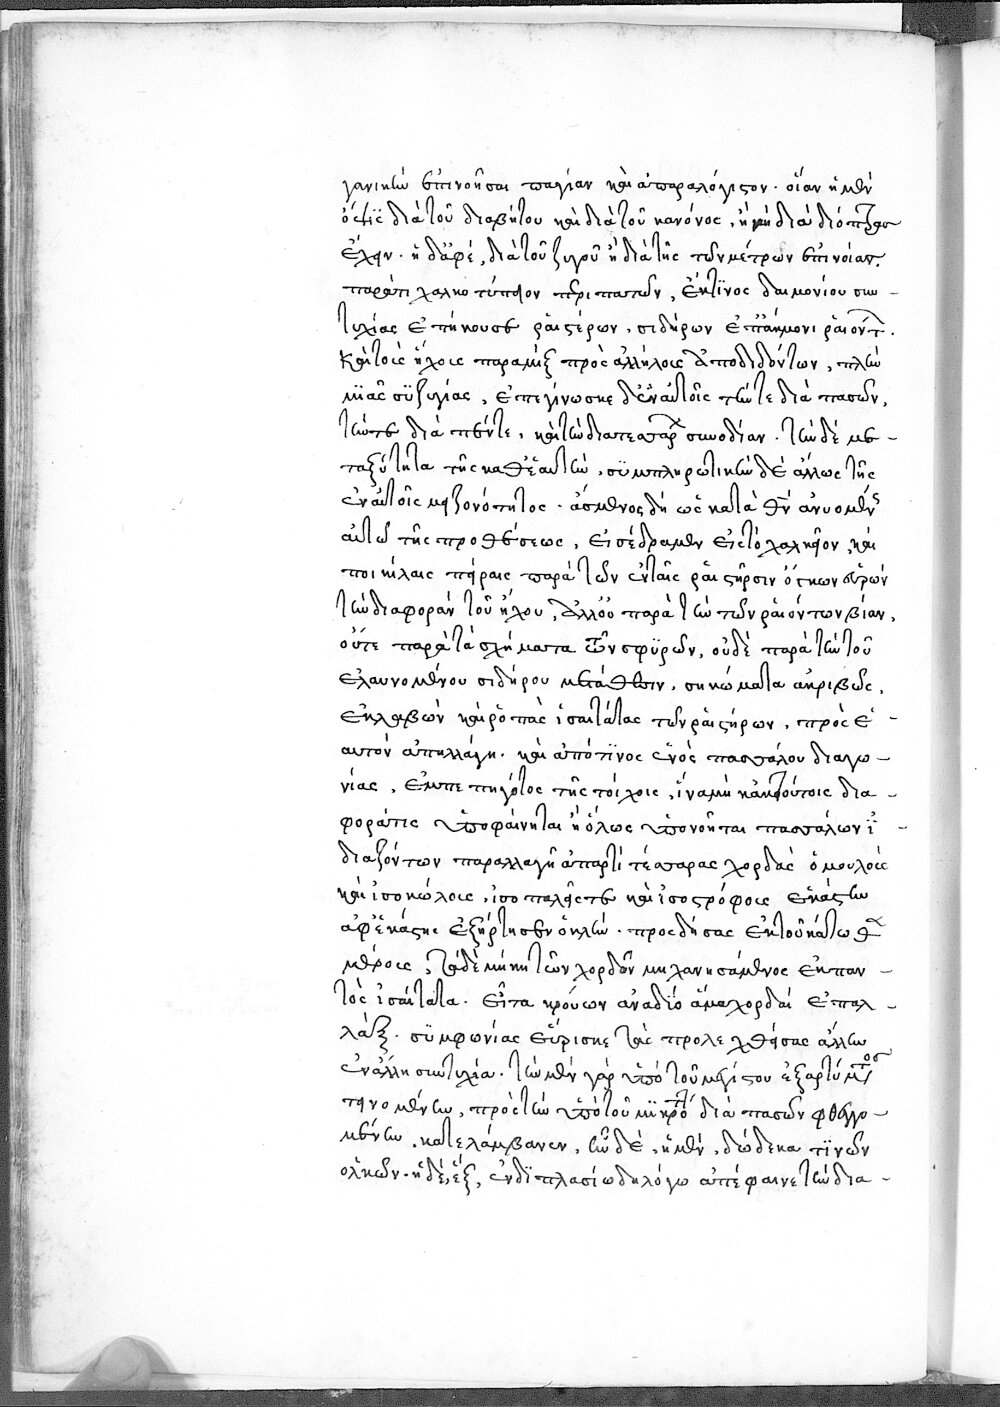 γανικὴν ἐπινοῆσαι παγίαν καὶ ἀπαραλόγιστον. οἵαν ἡ μὲν
ὄψϊς διὰ τοῦ διαβήτου καὶ διὰ τοῦ κανόνος, ἢ νὴ διὰ διόπτρας
ἔχει. ἡ δ' ἁφὴ, διὰ τοῦ ζυγοῦ ἢ διὰ τῆς τῶν μέτρων ἐπινοίας.
παρά τι χαλκοτύπειον περιπατῶν, ἔκ τϊνος δαιμονίου συν-
τυχίας ἐπήκουσε ῥαιστέρων, σιδήρων ἐπ' ἄκμονι ῥαιόντων.
καὶ τοὺς ἤχους παραμὶξ πρὸς ἀλλήλους ἀποδιδόντων, πλὴν
μϊᾶς συζυγίας, ἐπεγίνωσκε δ' ἐν αὐτοῖς τήν τε διὰ πασῶν,
τήν τε διὰ πέντε, καὶ τὴν διὰ τεσσάρων συνῳδίαν. τὴν δὲ με-
ταξύτητα τῆς καθ' ἑαυτὴν, συμπληρωτικὴν δὲ ἄλλως τῆς
ἐν αὐτοῖς μειζονότητος. ἄσμενος δὴ ὡς κατὰ θεὸν ἀνυομένης
αὐτῷ τῆς προθέσεως, εἰσέδραμεν εἰς τὸ χαλκεῖον, καὶ
ποικίλαις πείραις παρὰ τῶν ἐν ταῖς ῥαιστῆρσιν ὄγκων εὑρὼν
τὴν διαφορὰν τοῦ ἤχου, ἀλλ' οὐ παρὰ τὴν τῶν ῥαιόντων βίαν,
οὔτε παρὰ τὰ σχήματα τῶν σφϋρῶν, οὐδὲ παρὰ τὴν τοῦ
ἐλαυνομένου σιδήρου μετάθεσιν, σηκώματα ἀκριβῶς,
ἐκλαβὼν καὶ ῥοπὰς ἰσαιτάτας τῶν ῥαιστήρων, πρὸς ἑ-
αυτὸν ἀπηλλάγη. καὶ ἀπό τϊνος ἑνὸς πασσάλου διαγω-
νίας, ἐμπεπηγότος τῆς τοίχοις, ἵνα μὴ κἀκ τούτοις δια-
φορά τις ὑποφαίνηται ἢ ὅλως ὑπονοῆται πασσάλων ἰ-
διαζόντων παραλλαγὴ ἀπαρτί τέσσαρας χορδὰς ὁμούλους
καὶ ἰσοκώλους, ἰσοπαλεῖς τε καὶ ἰσοστρόφους ἑκάστην
ἀφ' ἑκάστης ἐξήρτησεν ὁλκὴν. προσδήσας ἐκ τοῦ κάτωθεν
μέρους, τὰ δὲ μήκη τῶν χορδῶν μηχανησάμενος ἐκ παν-
τὸς ἰσαίτατα. εἶτα κρούων ἀνὰ δύο ἅμα χορδὰς ἐπαλ-
λὰξ. συμφωνίας εὕρισκε τὰς προλεχθήσας ἄλλην
ἐν ἄλλῃ συντυχίᾳ. τὴν μὲν γὰρ ὑπὸ τοῦ μεγίστου ἐξαρτύματος
τεινομένην, πρὸς τὴν ὑπὸ τοῦ μϊκροτάτου διὰ πασῶν φθεγγο-
μένην, κατελάμβανεν, ἦν δὲ, ἡ μὲν, δώδεκα τϊνῶν
ὁλκῶν. ἡ δὲ, ἓξ, ἐν διπλασίῳ δὴ λόγῳ ἀπέφαινε τὴν διὰ-